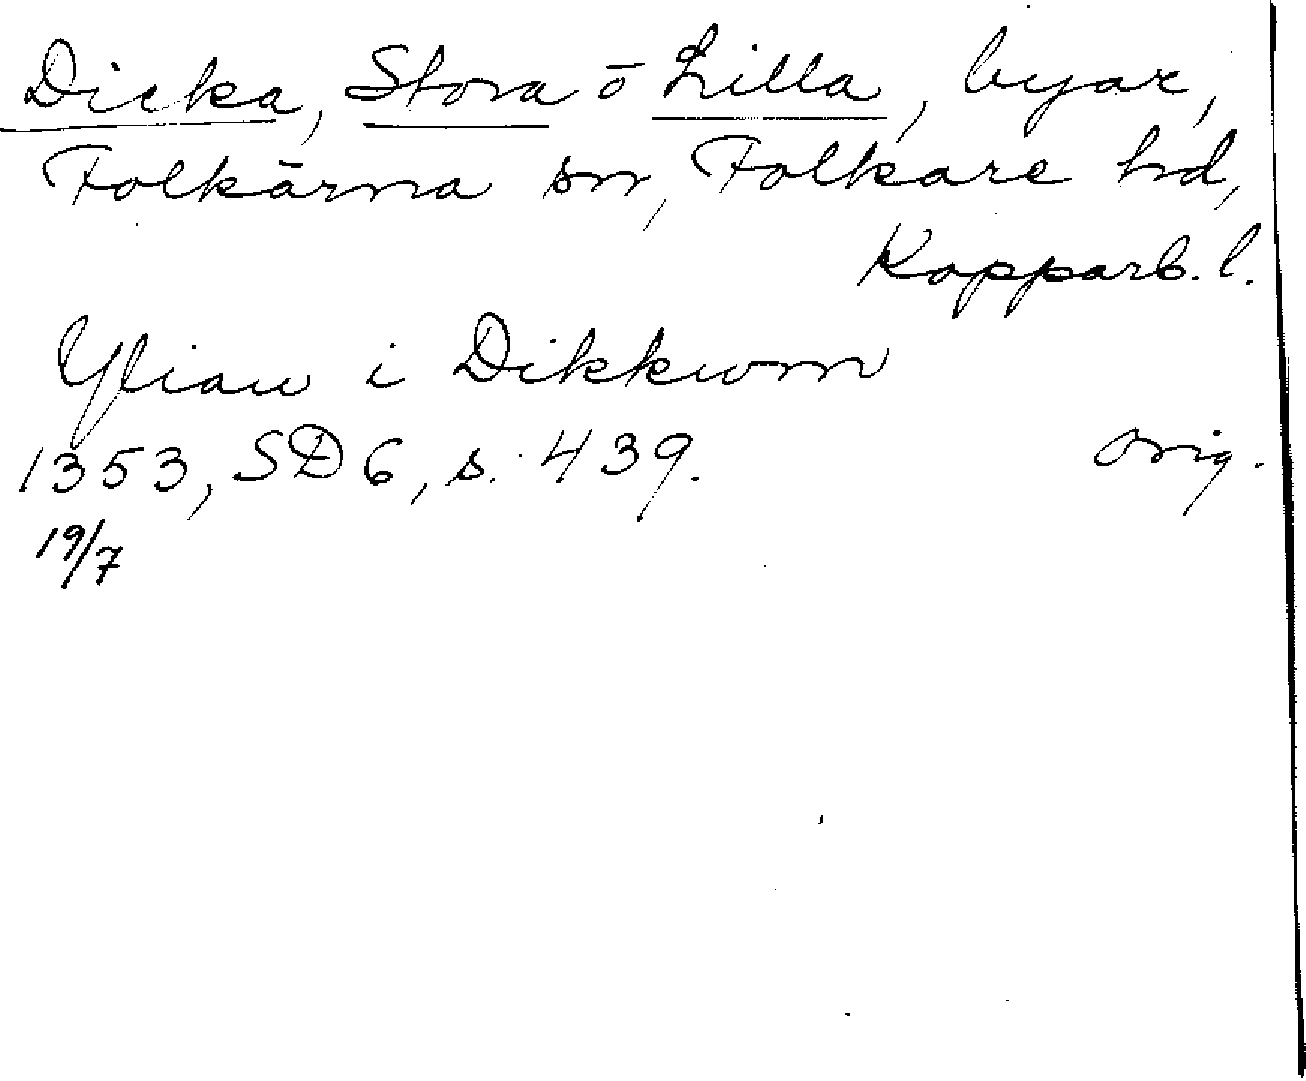 Dicka, Stora o Lilla, byar,
Folkärna sn, Folkare hd,
Kopparb. l.
Yliau i Dikkwm
1353, SD 6, s. 439. orig.
19/7